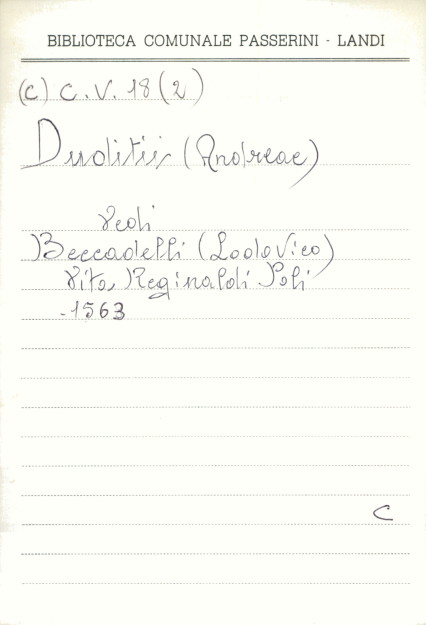 BIBLIOTECA COMUNALE PASSERINI - LANDI
(C) C. V. 18 (2)
Duditii (Andreae)
Vedi
Beccadelli (Lodovico)
Vita Reginaldi Poli
- 1563
C